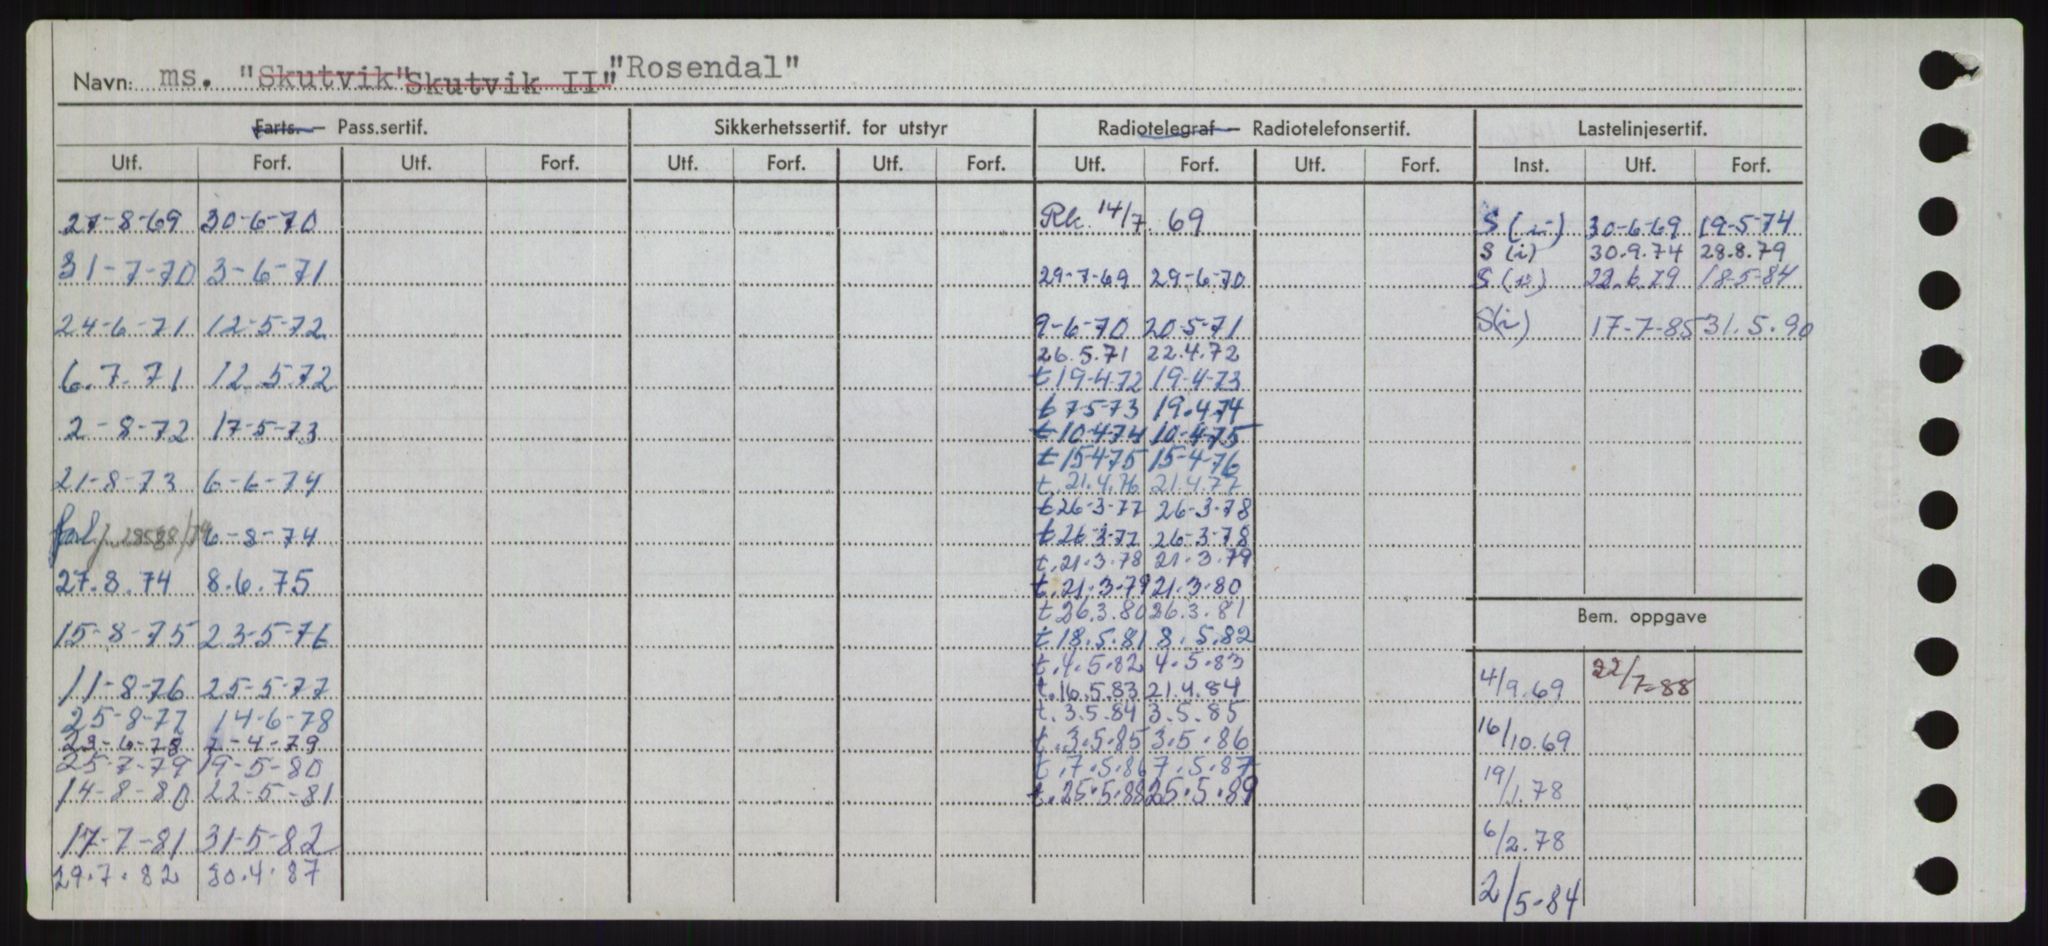 Navn: ms. "Skutvik" Skutvik II" "Rosendal"
Farts. — Pass.sertif. Sikkerhetssertif. for utstyr Radiotelegraf — Radiotelefonsertif. Lastelinjesertif.
Utf. Forf. Utf. Forf. Utf. Forf. Utf. Forf. Utf. Forf. Utf. Forf. Inst. Utf. Forf.
27-8-69 30-6-70
31-7-70 3-6-71
24-6-71 12-5-72
6.7.71 12.5.72
2-8-72 17-5-73
21-8-73 6-6-74
forl. 6-8-74
27.8.74 8.6.75
15-8-75 23-5-76
11-8-76 25-5-77
25-8-77 14-6-78
23-6-78 7-4-79
25-7-79 19-5-80
14-8-80 22-5-81
17-7-81 31-5-82
29.7.82 30.4.87
Rk. 14/7. 69
29-7-69 29-6-70
9-6-70 20-5-71
26.5.71 22.4.72
t 19-4-72 19-4-73
t 7-5-73 19.4.74
t 10-4-74 10-4-75
t 15-4-75 15-4-76
t. 21.4.76 21.4.77
t 26-3-77 26-3-78
t 26-3-77 26-3-78
t. 21.3.78 21.3.79
t. 21.3.79 21.3.80
t 26.3.80 26.3.81
t 18.5.81 8.5.82
t. 4.5.82 4.5.83
t. 16.5.83 21.4.84
t. 3.5.84 3.5.85
t. 3.5.85 3.5.86
t. 7.5.86 7.5.87
t. 25.5.88 25.5.89
S (i) 30-6-69 19-5-74
S (i) 30.9.74 28.8.79
S (i) 22.6.79 18-5-84
S(i) 17-7-85 31.5.90
Bem. oppgave
4/9.69 22/7-88
16/10.69
19/1.78
6/2.78
2/5-84